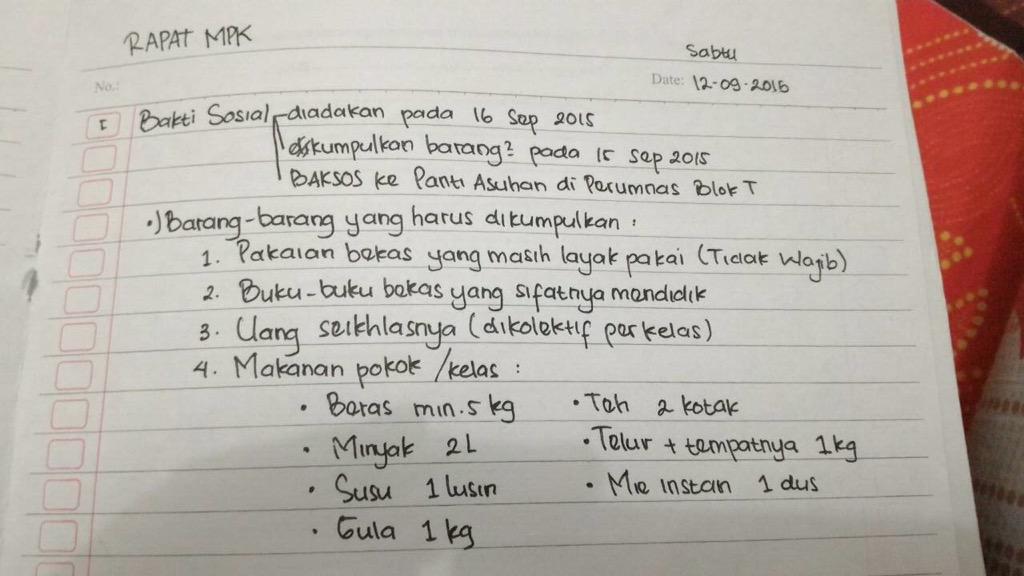 RAPAT MPK
Sabtu
No.:
Date: 12-09-2015
I Bakti Sosial diadakan pada 16 Sep 2015
dikumpulkan barang² pada 15 Sep 2015
BAKSOS ke Panti Asuhan di Perumnas Blok T
•) Barang-barang yang harus dikumpulkan :
1. Pakaian bekas yang masih layak pakai (Tidak Wajib)
2. Buku-buku bekas yang sifatnya mendidik
3. Uang seikhlasnya (dikolektif perkelas)
4. Makanan pokok /kelas :
• Beras min. 5 kg • Teh 2 kotak
• Minyak 2L • Telur + tempatnya 1 kg
• Susu 1 lusin • Mie instan 1 dus
• Gula 1 kg